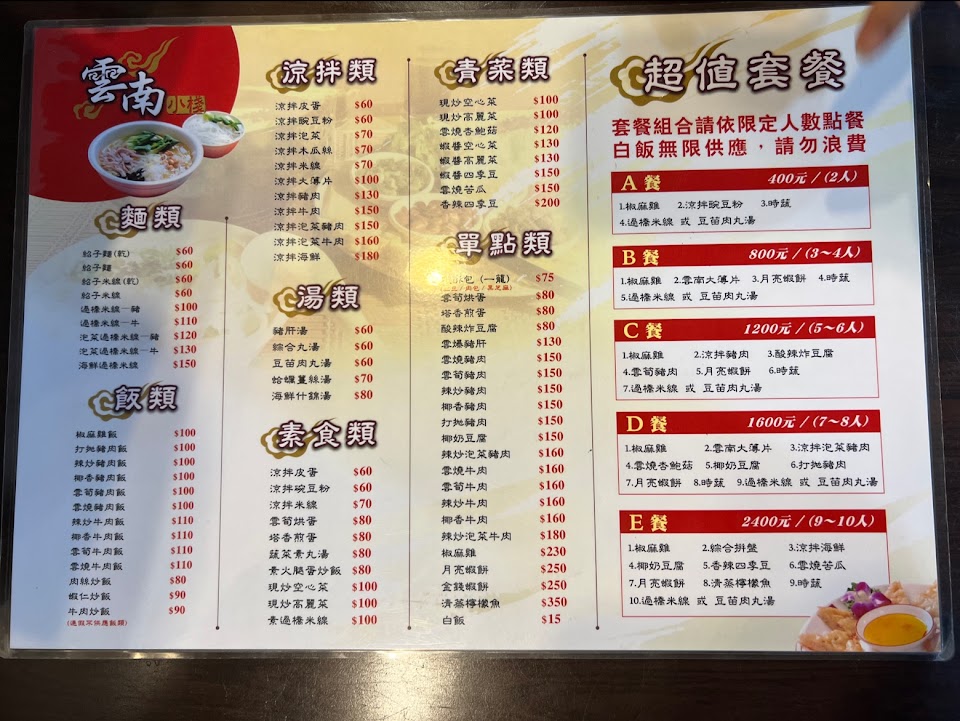 雲南小棧
麵類
給子麵(乾) $60
給子麵 $60
給子米線(乾) $60
給子米線 $60
過橋米線—豬 $100
過橋米線—牛 $110
泡菜過橋米線—豬 $120
泡菜過橋米線—牛 $130
海鮮過橋米線 $150
飯類
椒麻雞飯 $100
打拋豬肉飯 $100
辣炒豬肉飯 $100
椰香豬肉飯 $100
雲筍豬肉飯 $100
雲燒豬肉飯 $100
辣炒牛肉飯 $110
椰香牛肉飯 $110
雲筍牛肉飯 $110
雲燒牛肉飯 $110
肉絲炒飯 $80
蝦仁炒飯 $90
牛肉炒飯 $90
(連假不供應飯類)
涼拌類
涼拌皮蛋 $60
涼拌豌豆粉 $60
涼拌泡菜 $70
涼拌木瓜絲 $70
涼拌米線 $70
涼拌大薄片 $100
涼拌豬肉 $130
涼拌牛肉 $150
涼拌泡菜豬肉 $150
涼拌泡菜牛肉 $160
涼拌海鮮 $180
湯類
豬肝湯 $60
綜合丸湯 $60
豆苗肉丸湯 $60
蛤蠣薑絲湯 $70
海鮮什錦湯 $80
素食類
涼拌皮蛋 $60
涼拌碗豆粉 $60
涼拌米線 $70
雲筍烘蛋 $80
塔香煎蛋 $80
蔬菜素丸湯 $80
素火腿蛋炒飯 $80
現炒空心菜 $100
現炒高麗菜 $100
素過橋米線 $100
青菜類
現炒空心菜 $100
現炒高麗菜 $100
雲燒杏鮑菇 $120
蝦醬空心菜 $130
蝦醬高麗菜 $130
蝦醬四季豆 $150
雲燒苦瓜 $150
香辣四季豆 $200
單點類
包 (一籠) $75
肉包/黑芝麻)
雲筍烘蛋 $80
塔香煎蛋 $80
酸辣炸豆腐 $80
雲爆豬肝 $130
雲燒豬肉 $150
雲筍豬肉 $150
辣炒豬肉 $150
椰香豬肉 $150
打拋豬肉 $150
椰奶豆腐 $150
辣炒泡菜豬肉 $160
雲燒牛肉 $160
雲筍牛肉 $160
辣炒牛肉 $160
椰香牛肉 $160
辣炒泡菜牛肉 $180
椒麻雞 $230
月亮蝦餅 $250
金錢蝦餅 $250
清蒸檸檬魚 $350
白飯 $15
超值套餐
套餐組合請依限定人數點餐
白飯無限供應，請勿浪費
A餐 400元/(2人)
1.椒麻雞 2.涼拌豌豆粉 3.時蔬
4.過橋米線 或 豆苗肉丸湯
B餐 800元/(3~4人)
1.椒麻雞 2.雲南大薄片 3.月亮蝦餅 4.時蔬
5.過橋米線 或 豆苗肉丸湯
C餐 1200元/(5~6人)
1.椒麻雞 2.涼拌豬肉 3.酸辣炸豆腐
4.雲筍豬肉 5.月亮蝦餅 6.時蔬
7.過橋米線 或 豆苗肉丸湯
D餐 1600元/(7~8人)
1.椒麻雞 2.雲南大薄片 3.涼拌泡菜豬肉
4.雲燒杏鮑菇 5.椰奶豆腐 6.打拋豬肉
7.月亮蝦餅 8.時蔬 9.過橋米線 或 豆苗肉丸湯
E餐 2400元/(9~10人)
1.椒麻雞 2.綜合拼盤 3.涼拌海鮮
4.椰奶豆腐 5.香辣四季豆 6.雲燒苦瓜
7.月亮蝦餅 8.清蒸檸檬魚 9.時蔬
10.過橋米線 或 豆苗肉丸湯